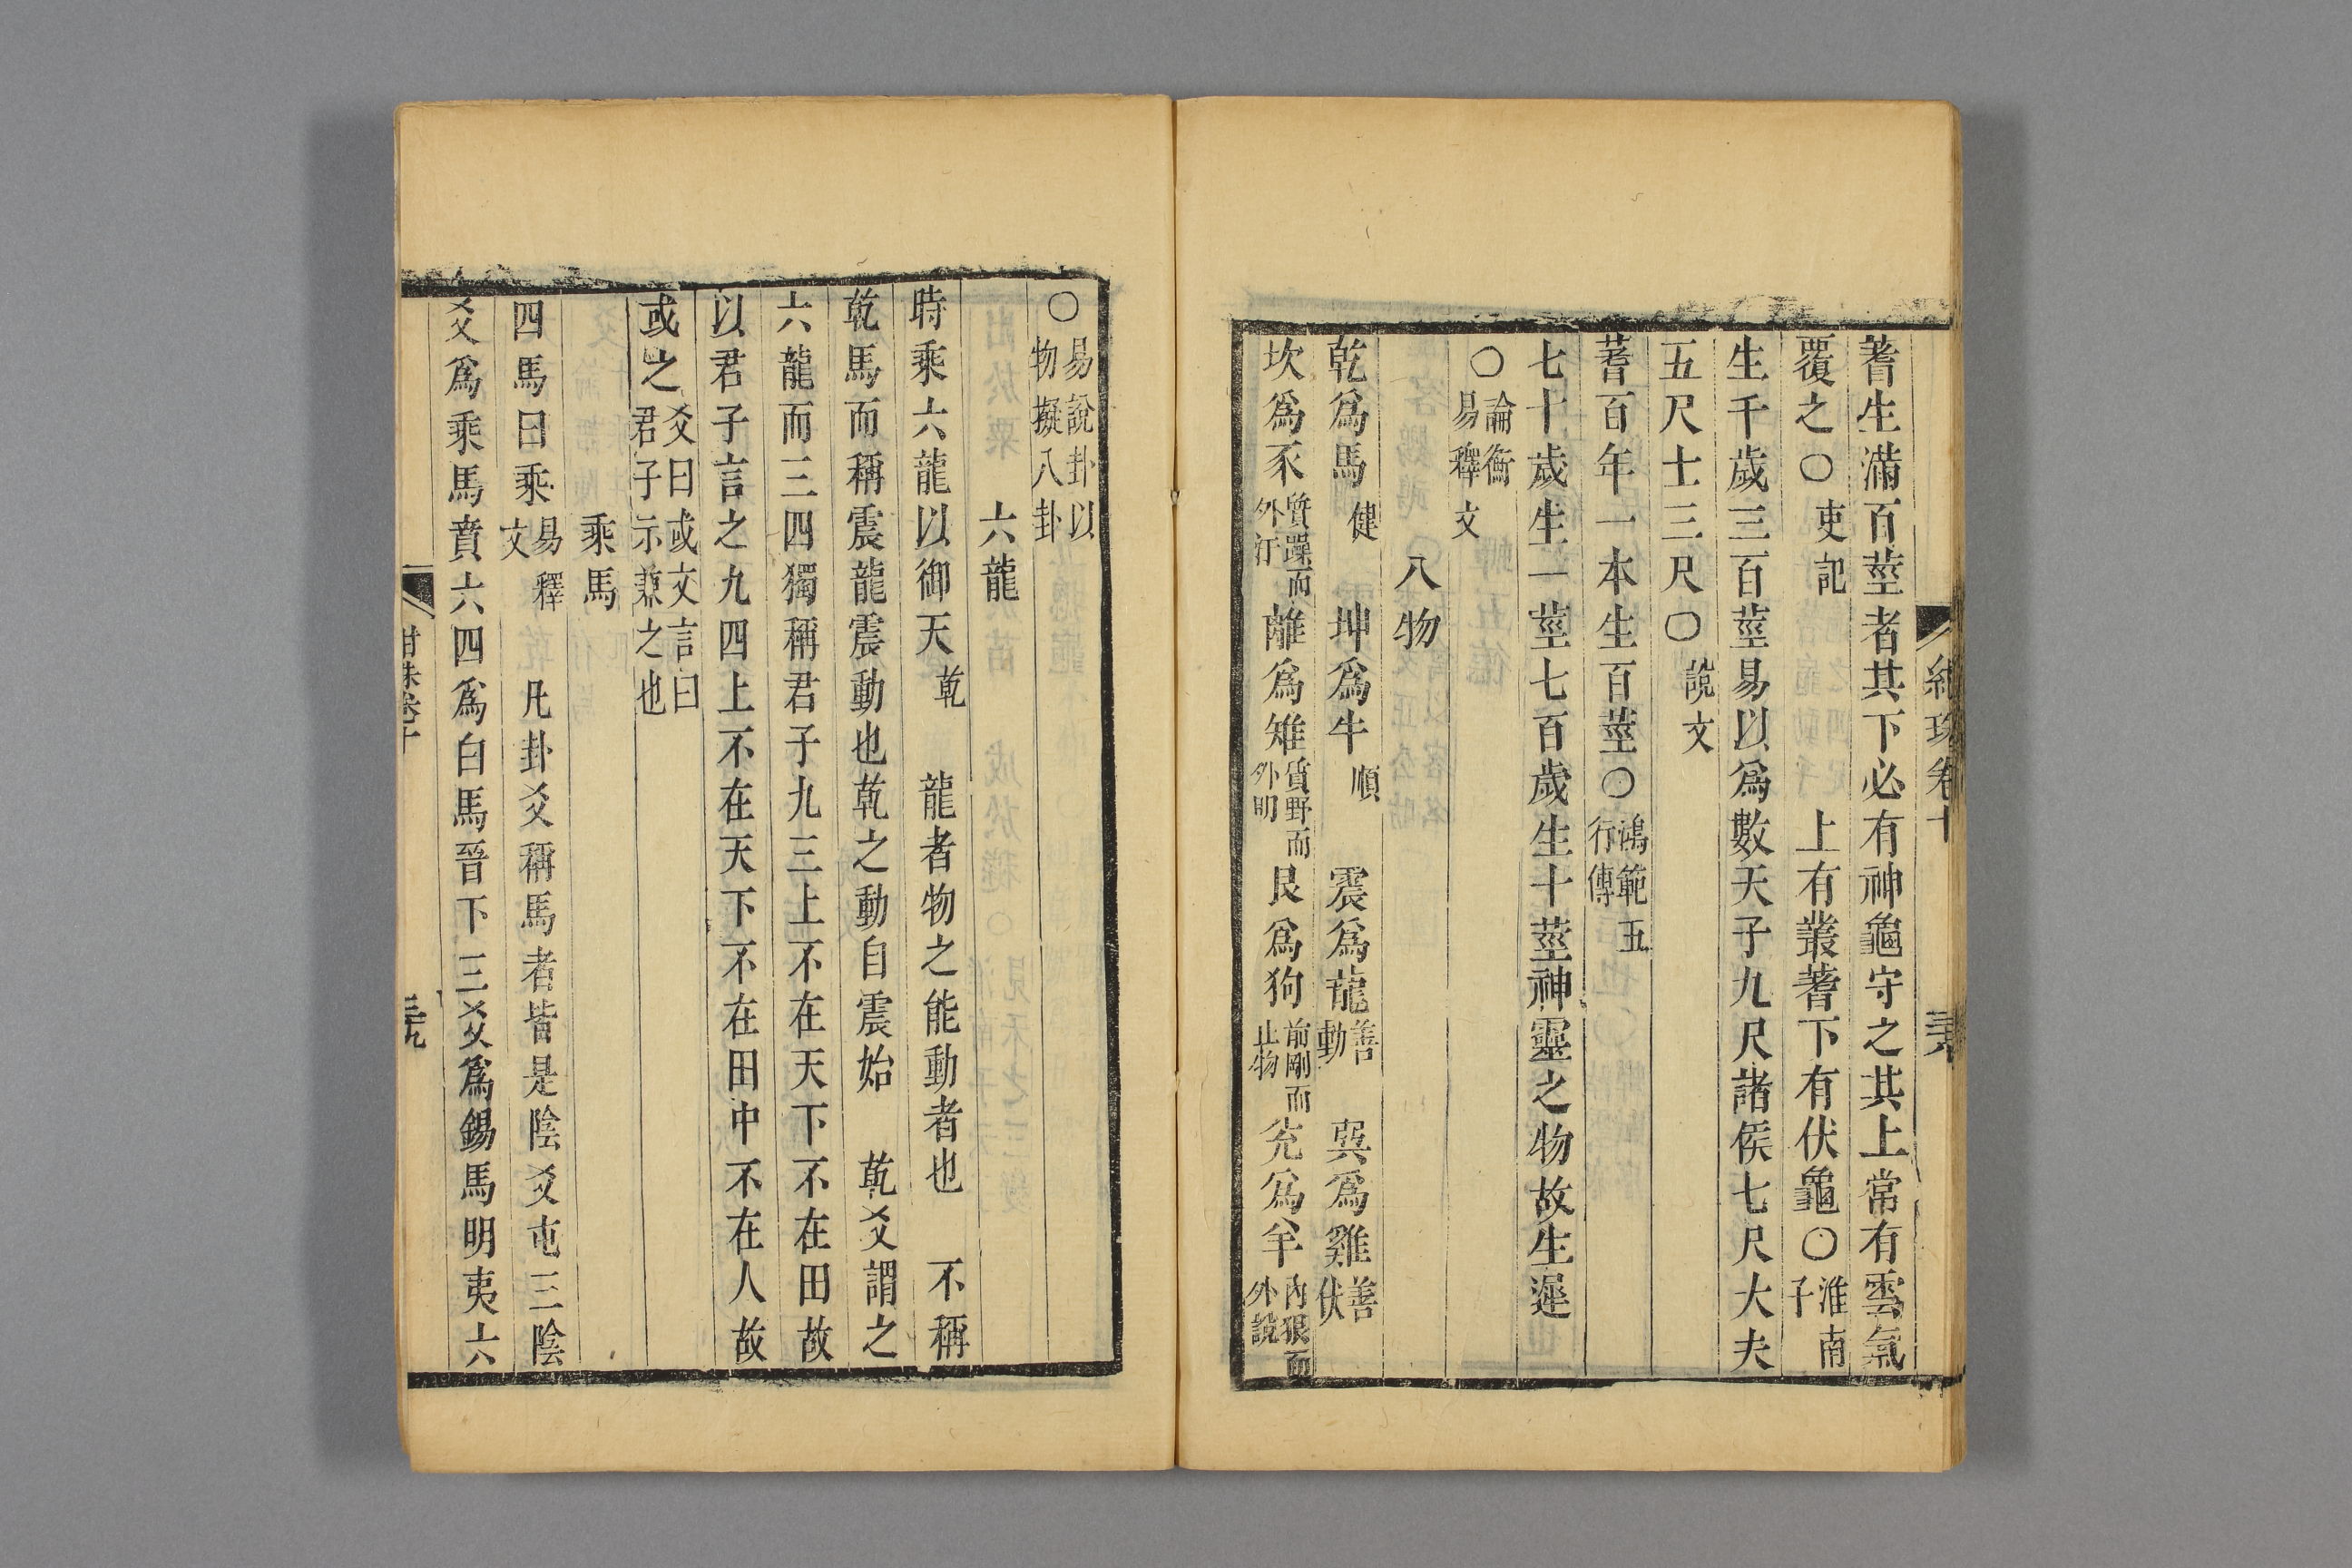 紺珠卷十
蓍生滿百莖者其下必有神龜守之其上常有雲氣
覆之〇史記 上有叢蓍下有伏龜〇淮南子
生千歲三百莖易以爲數天子九尺諸侯七尺大夫
五尺士三尺〇說文
蓍百年一本生百莖〇鴻範五行傳
七十歲生一莖七百歲生十莖神靈之物故生遲
〇論衡易釋文
八物
乾爲馬健 坤爲牛順 震爲龍善動 巽爲雞善伏
坎爲豕質躁而外汙離爲雉質野而外明艮爲狗前剛而止物兌爲羊內狠而外說
〇易說卦以物擬八卦
六龍
時乘六龍以御天乾 龍者物之能動者也 不稱
乾馬而稱震龍震動也乾之動自震始 乾爻謂之
六龍而三四獨稱君子九三上不在天下不在田故
以君子言之九四上不在天下不在田中不在人故
或之爻曰或文言曰君子示兼之也
乘馬
四馬曰乘易釋文 凡卦爻稱馬者皆是陰爻屯三陰
爻爲乘馬賁六四爲白馬晉下三爻爲錫馬明夷六
紺珠卷十